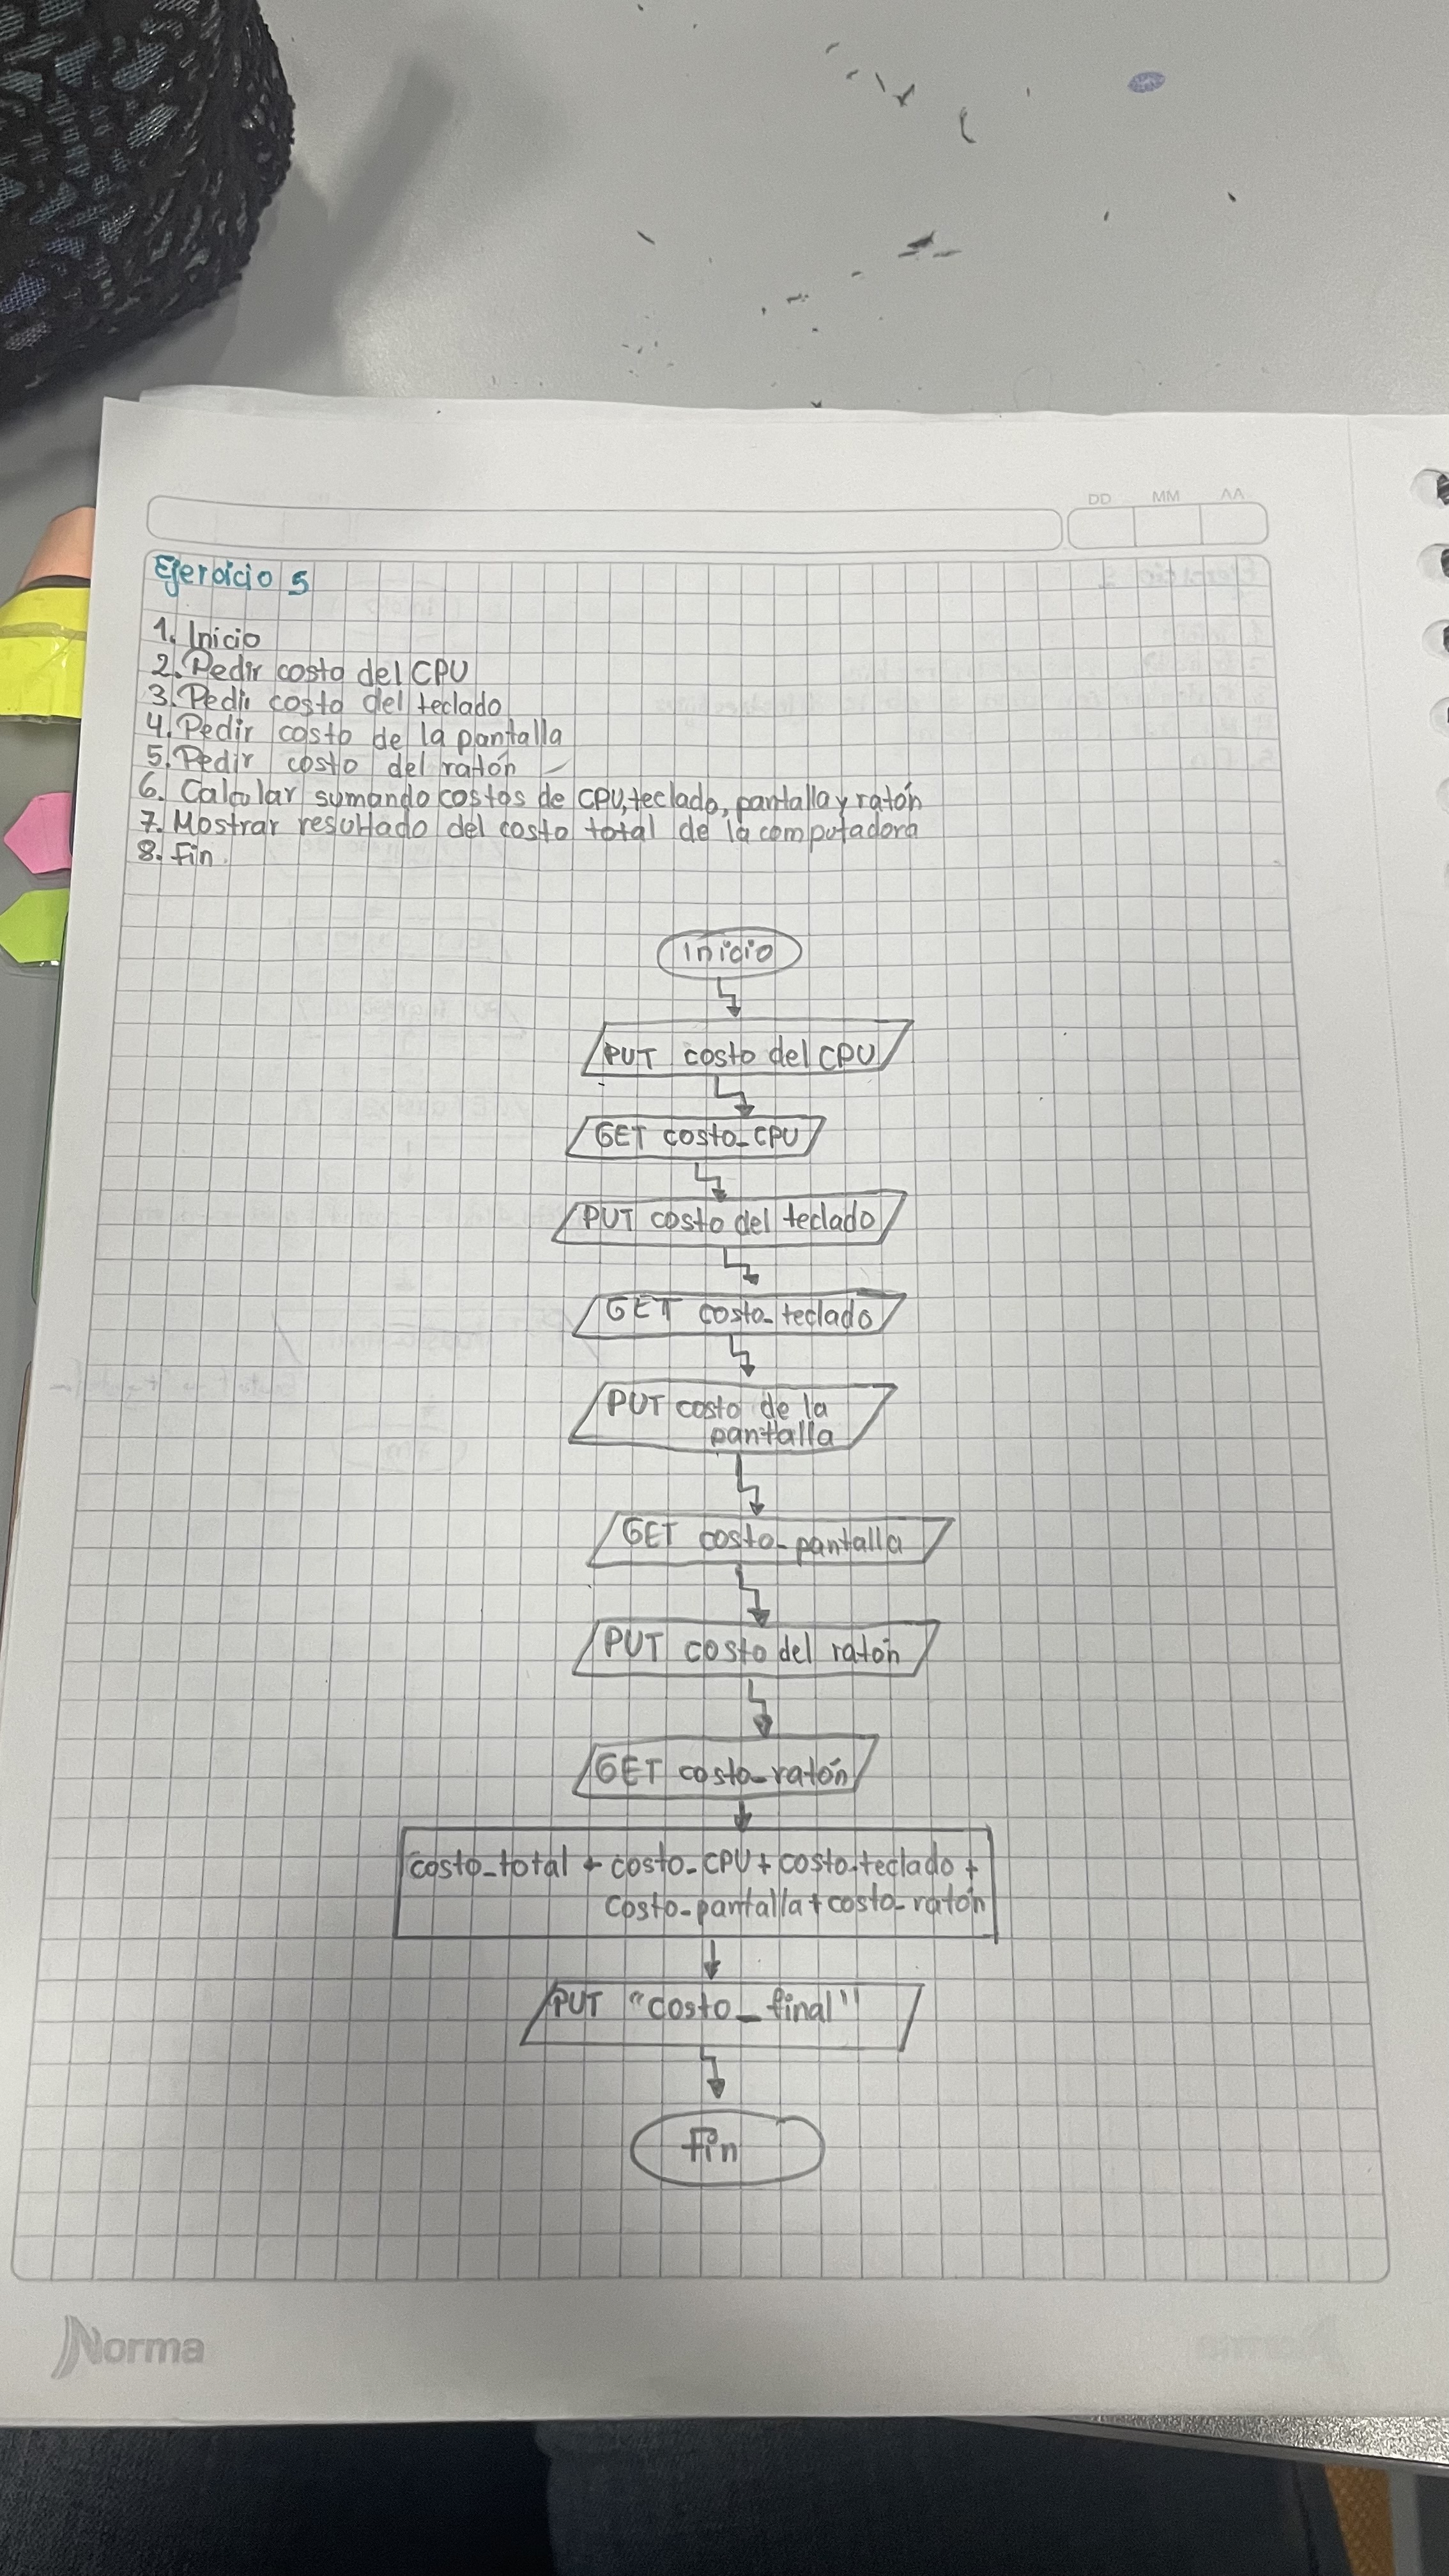 DD MM AA
Ejercicio 5
1. Inicio
2. Pedir costo del CPU
3. Pedir costo del teclado
4. Pedir costo de la pantalla
5. Pedir costo del ratón
6. Calcular sumando costos de CPU, teclado, pantalla y ratón
7. Mostrar resultado del costo total de la computadora
8. Fin.
Inicio
PUT costo del CPU
GET costo_CPU
PUT costo del teclado
GET costo_teclado
PUT costo de la
pantalla
GET costo_pantalla
PUT costo del ratón
GET costo_ratón
costo_total ← costo_CPU + costo_teclado +
costo_pantalla + costo_ratón
PUT "costo_final"
Fin
Norma